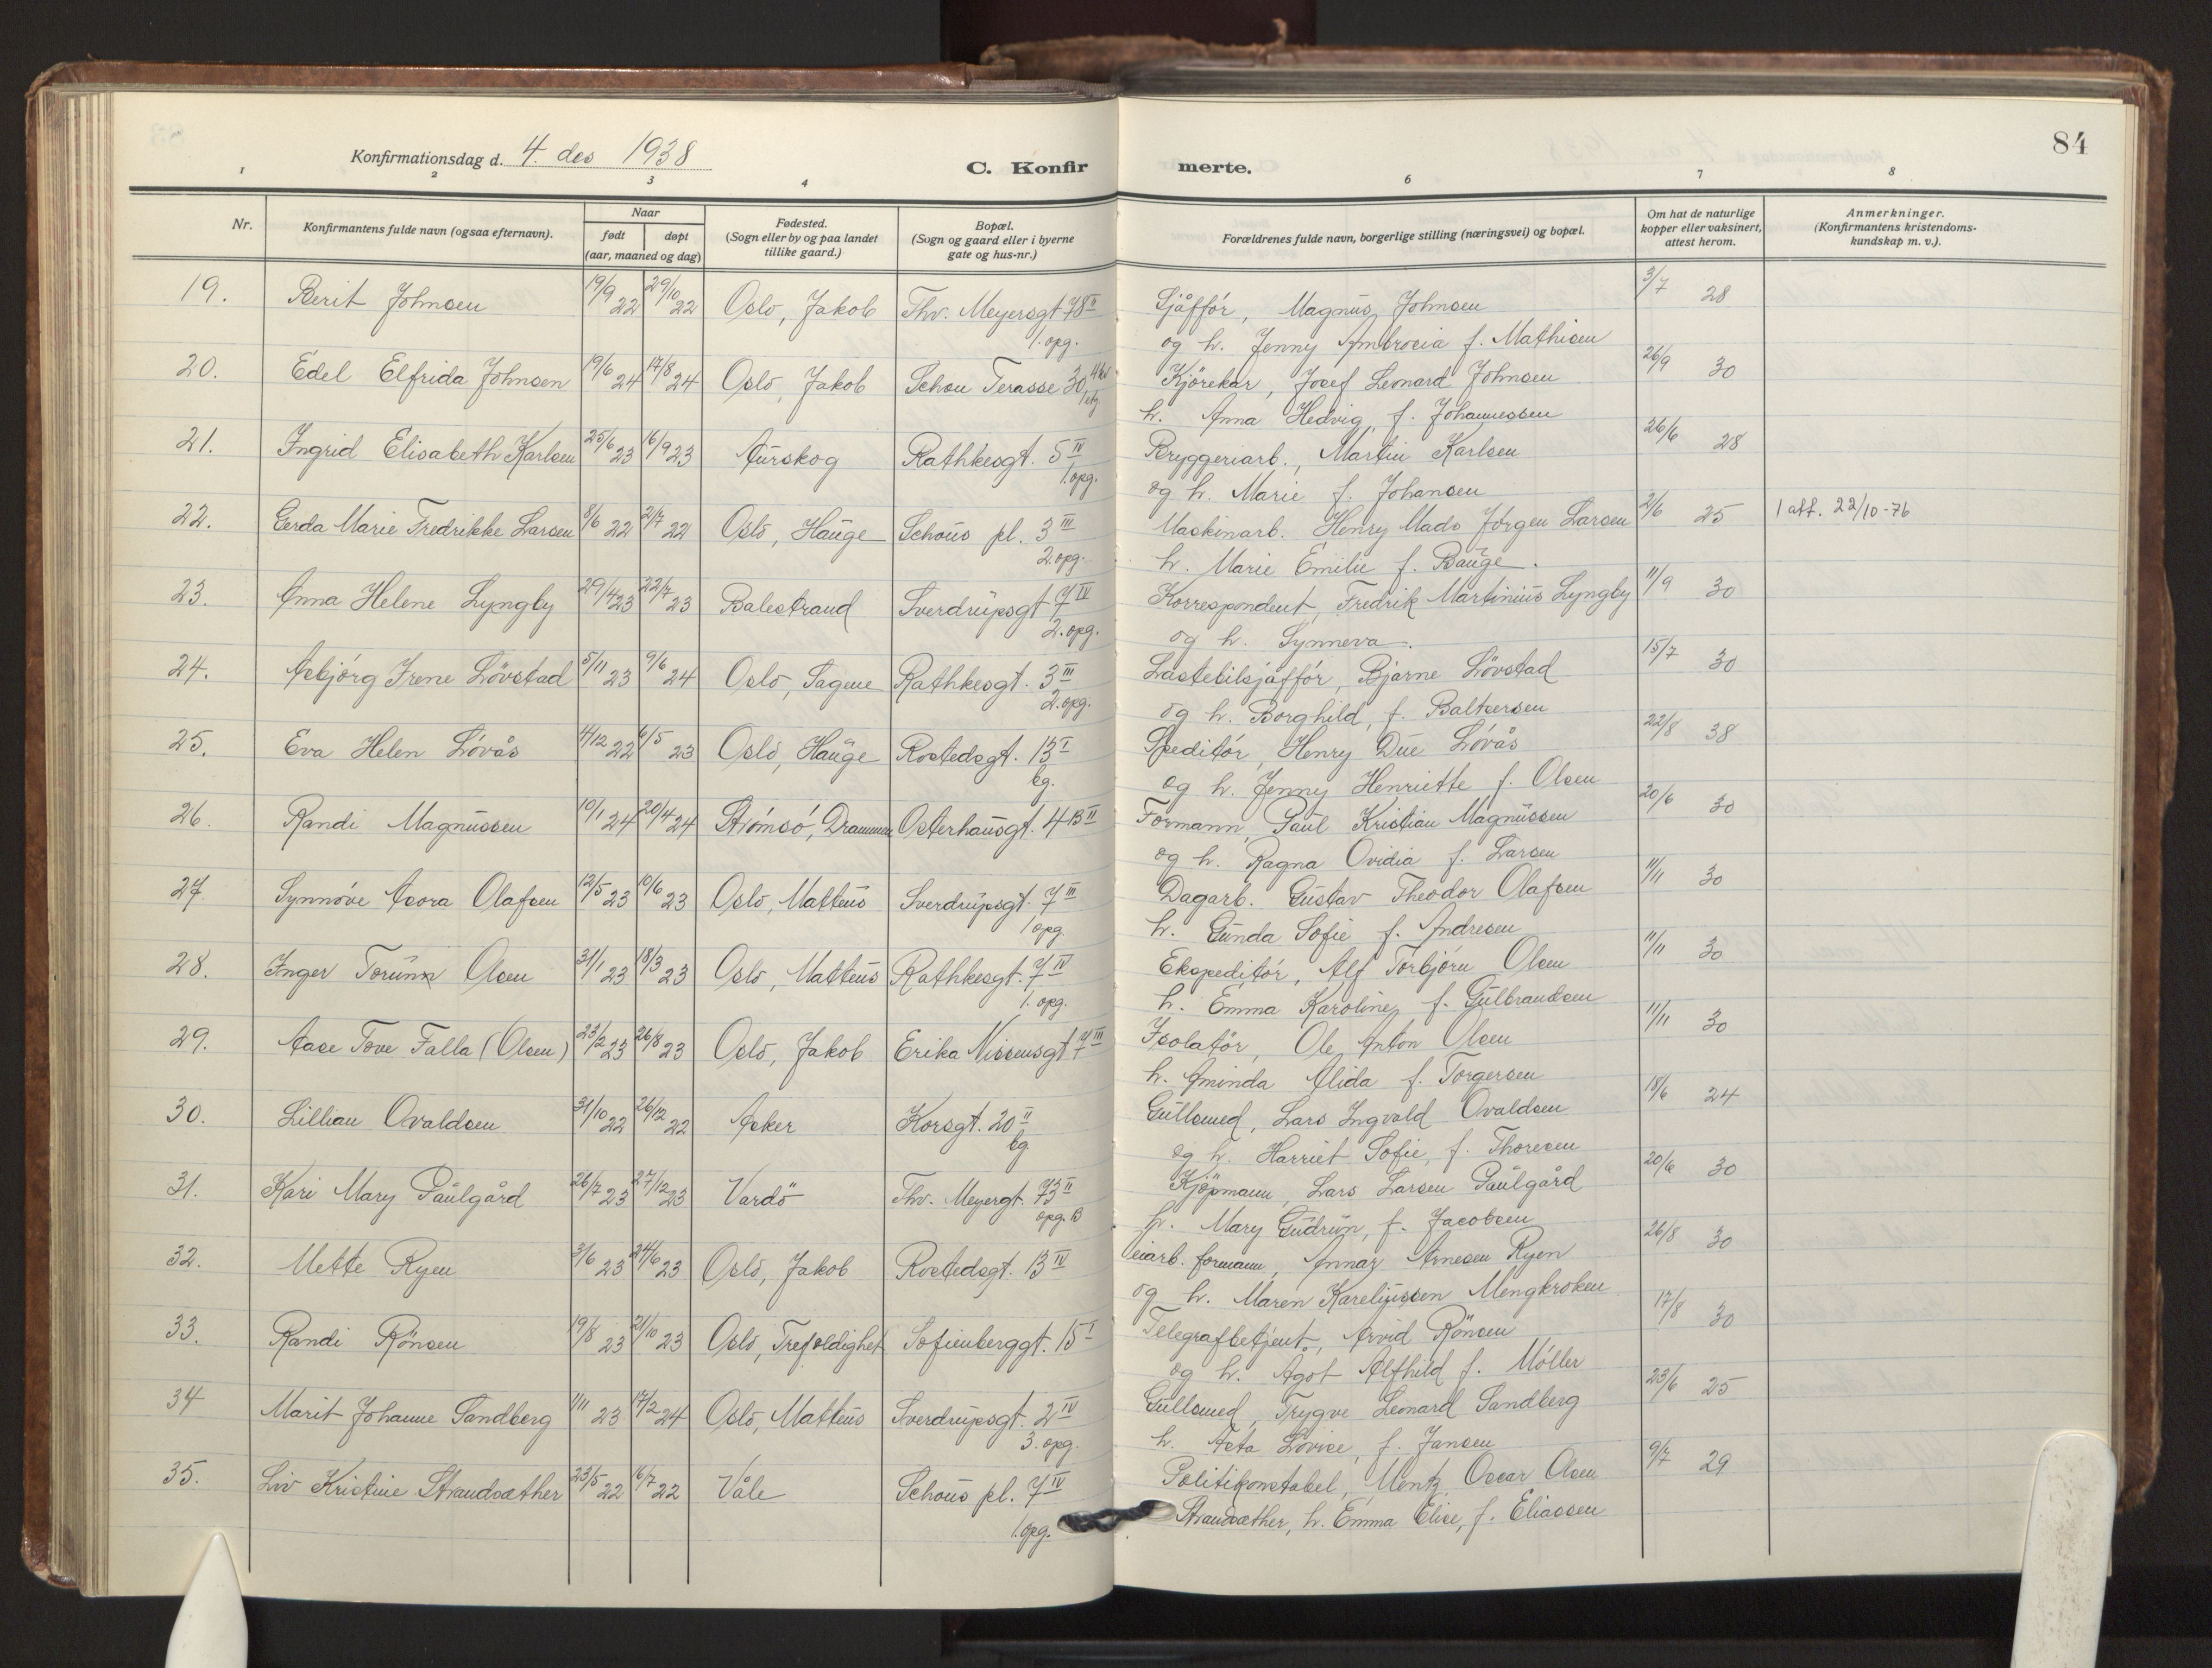 84
Konfirmationsdag d. 4. des 1938
C. Konfirmerte.
1 2 3 4 6 7 8
Nr.
Konfirmantens fulde navn (ogsaa efternavn).
Naar
født
døpt
(aar, maaned og dag)
Fødested.
(Sogn eller by og paa landet
tillike gaard.)
Bopæl.
(Sogn og gaard eller i byerne
gate og hus-nr.)
Forældrenes fulde navn, borgerlige stilling (næringsvei) og bopæl.
Om hat de naturlige
kopper eller vaksinert,
attest herom.
Anmerkninger.
(Konfirmantens kristendoms-
kundskap m. v.).
19. Berit Johnsen 19/9 22 29/10 22 Oslo, Jakob Thv. Meyersgt 78 II 1. opg. Sjåffór, Magnus Johnsen 3/7 28
og h. Jenny Ambrosia f. Mathisen
20. Edel Elfrida Johnsen 19/6 24 17/8 24 Oslo, Jakob Schou Terasse 30 Kjörekar, Josef Leonard Johnsen 26/9 30
h. Anna Hedvig, f. Johannessen
21. Ingrid Elisabeth Karlsen 25/6 23 16/9 23 Aurskog Rathkesgt. 5 IV 1. opg. Bryggeriarb., Martin Karlsen 26/6 28
og h. Marie f. Johansen
22. Gerda Marie Fredrikke Larsen 8/6 22 2/7 22 Oslo, Hauge Schous pl. 3 III 2. opg. Maskinarb. Henry Mads Jörgen Larsen 2/6 25 1 att. 22/10-76
h. Marie Emilie f. Bauge.
23. Anna Helene Lyngby 29/4 23 22/7 23 Balestrand Sverdrupsgt 7 IV 2. opg. Korrespondent, Fredrik Martinius Lyngby 11/9 30
og h. Synneva.
24. Asbjórg Irene Lövstad 5/11 23 9/6 24 Oslo, Sagene Rathkesgt. 3 III 2. opg. Lastebilsjåffór, Bjarne Lövstad 15/7 30
og h. Borghild, f. Baltzersen
25. Eva Helen Lóvås 4/12 22 6/5 23 Oslo, Hauge Rostedsgt. 13 I bg. Speditór, Henry Due Lóvås 22/8 38
og h. Jenny Henriette f. Olsen
26. Randi Magnussen 10/1 24 20/4 24 Strómsó, Drammen Osterhausgt. 4 B II Formann, Paul Kristian Magnussen 20/6 30
og h. Ragna Ovidia f. Larsen
27. Synnóve Asora Olafsen 12/5 23 10/6 23 Oslo, Matteus Sverdrupsgt. 7 III 1 opg. Dagarb. Gustav Theodor Olafsen 11/11 30
h. Gunda Sofie f. Andresen
28. Inger Torunn Olsen 31/1 23 18/3 23 Oslo, Matteus Rathkesgt. 7 IV 1. opg. Ekspeditór, Alf Torbjórn Olsen 11/11 30
h. Emma Karoline, f. Gulbrandsen
29. Aase Tove Falla (Olsen) 23/2 23 26/8 23 Oslo, Jakob Erika Nissensgt 7 III Isolatör, Ole Anton Olsen 11/11 30
h. Aminda Alida f. Torgersen
30. Lillian Osvaldsen 31/10 22 26/12 22 Asker Korsgt. 20 II bg. Gullsmed, Lars Ingvald Osvaldsen 18/6 24
og h. Harriet Sofie, f. Thoresen
31. Kari Mary Paulgård 26/7 23 27/12 23 Vardö Thv. Meyergt. 73 II opg. B Kjøpmann, Lars Larsen Paulgård 20/6 30
h. Mary Gudrun, f. Jacobsen
32. Mette Ryen 3/6 23 24/6 23 Oslo, Jakob Rostedsgt. 13 IV eiarb. formann, Annar Arnesen Ryen 26/8 30
og h. Maren Mengkroken
33. Randi Rönsen 19/8 23 21/10 23 Oslo, Trefoldighet Sofienberggt. 15 I Telegrafbetjent, Arvid Rönsen 17/8 30
og h. Agot Alfhild f. Móller
34 Marit Johanne Sandberg 1/11 23 17/2 24 Oslo, Matteus Sverdrupsgt. 2 IV 3. opg. Gullsmed, Trygve Leonard Sandberg 23/6 25
h. Asta Lovise, f. Jansen
35. Liv Kristine Strandsæther 23/5 22 16/7 22 Våle Schous pl. 7 IV 1. opg. Politikonstabel, Mentz Oscar Olsen 9/7 29
Strandsæther, h. Emma Elise, f. Eliassen